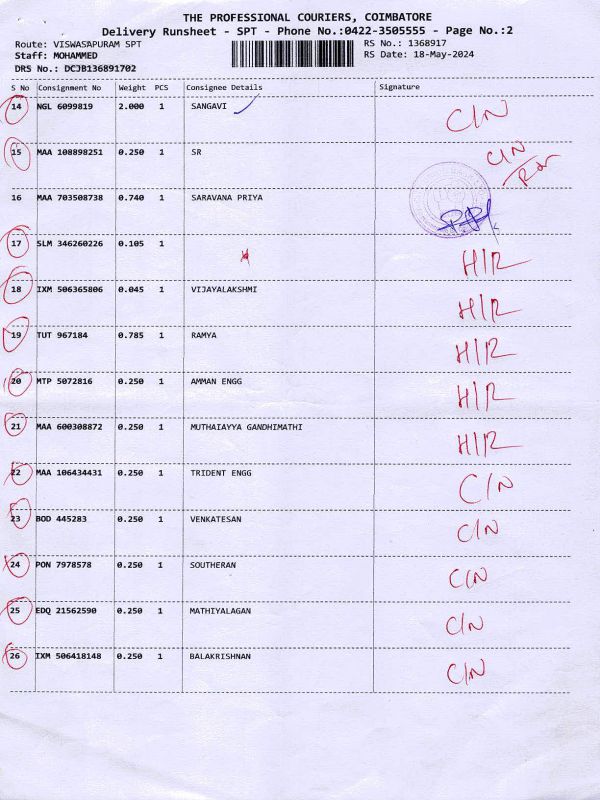 THE PROFESSIONAL COURIERS, COIMBATORE
Delivery Runsheet - SPT - Phone No.:0422-3505555 - Page No.:2
Route: VISWASAPURAM SPT RS No.: 1368917
Staff: MOHAMMED RS Date: 18-May-2024
DRS No.: DCJB136891702
S No Consignment No Weight PCS Consignee Details Signature
14 NGL 6099819 2.000 1 SANGAVI C/N
15 MAA 108898251 0.250 1 SR C/N
16 MAA 703508738 0.740 1 SARAVANA PRIYA
17 SLM 346260226 0.105 1 H/R
18 IXM 506365806 0.045 1 VIJAYALAKSHMI H/R
19 TUT 967184 0.785 1 RAMYA H/R
20 MTP 5072816 0.250 1 AMMAN ENGG H/R
21 MAA 600308872 0.250 1 MUTHAIAYYA GANDHIMATHI H/R
22 MAA 106434431 0.250 1 TRIDENT ENGG C/N
23 BOD 445283 0.250 1 VENKATESAN C/N
24 PON 7978578 0.250 1 SOUTHERAN C/N
25 EDQ 21562590 0.250 1 MATHIYALAGAN C/N
26 IXM 506418148 0.250 1 BALAKRISHNAN C/N